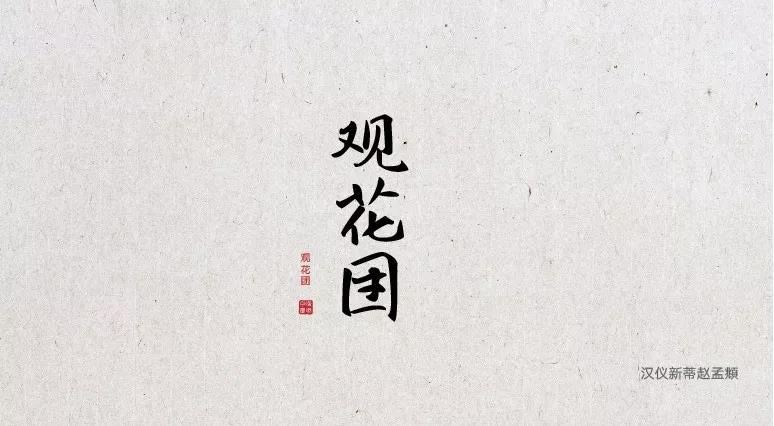 观花团
观花团
汉仪新蒂赵孟頫